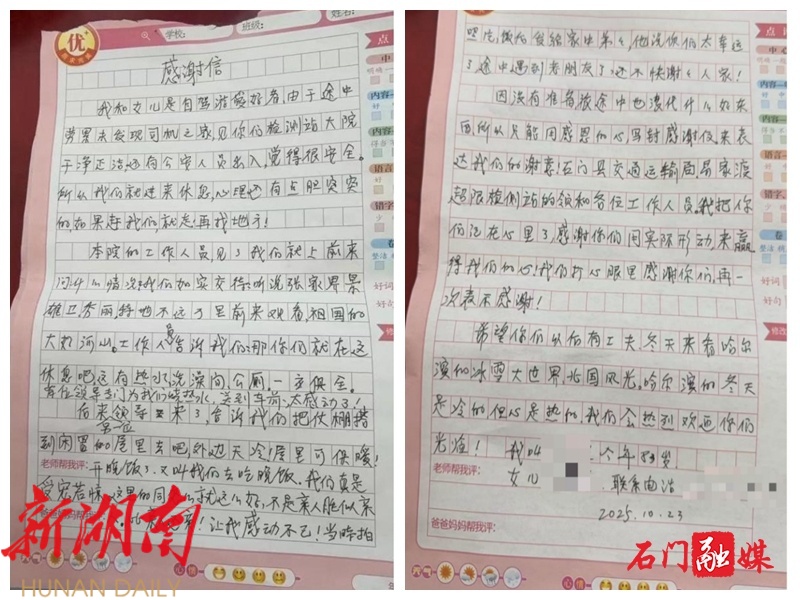 优
学校:
班级:
姓名:
感谢信
我和女儿是自驾游爱好者,由于途中
劳累去发现司机之感,见你们检测站大院
干净正洁还有公安人员出入,觉得很安全。
所以我们就进来休息,心理还有点胆突突
的如果赶我们就走,再找地方!
本院的工作人员见了我们就上前来
问什么情况?我们如实交待,听说张家界景
雄卫秀丽特地不远千里前来观看祖国的
大好河山。工作人员告诉我们:那你们就在这
休息吧,这有热水,洗澡间,公厕,一应俱全。
有位领导专门为我们烧热水,送到车前,太感动了!
后来领导又来了,告诉我们把仗棚搭
到闲置的屋里去吧,外边天冷!屋里可保暖!
老师帮我评:
开晚饭了,又叫我们去吃晚饭。我们真是
受宠若惊,这里的同
就这么好,不是亲人胜似亲
让我感动不已!当时拍
爸爸妈
心情
新湖南
HUNAN DAILY
照片,饭后发给家中弟弟,他说你们太幸运
了途中遇到老朋友了,还不快谢谢人家!
因没有准备,旅途中也没代什么好东
西,所以只能用感恩的心,写封感谢信来表
达我们的谢意!石门县交通运输局易家渡
超限检测站的领和各位工作人员,我把你
们记在心里了,感谢你们用实际形动来赢
得我们的心!我们打心眼里感谢你们,再一
次表示感谢!
希望你们以后有工夫冬天来看哈尔
滨的冰雪大世界,北国风光,哈尔滨的冬天
是冷的但心是热的,我们会热烈欢迎你们
光临!
我叫
今年83岁
老师帮我评:
女儿
联系电话
2025.10.23
爸爸妈妈帮我评:
心情
石门融媒